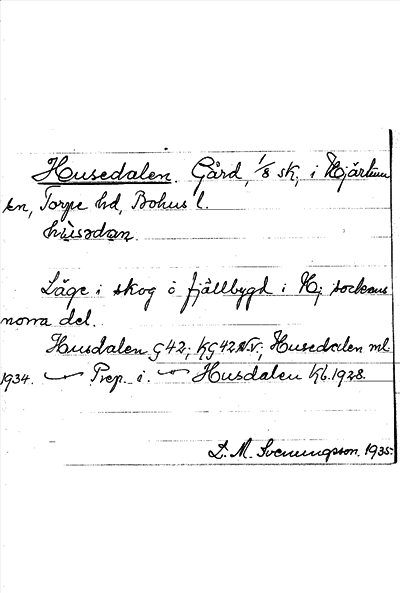 Husedalen. Gård, 1/8 sk, i Hjärtum
sn, Torpe hd, Bohus l.
hùsədan.
Läge i skog o fjällbygd i Hj sockens
norra del.
Husdalen G42; KG42 N.V.; Husedalen ml
1934. Prep. i. Husdalen Kb. 1928.
D. M. Svenningsson. 1935.